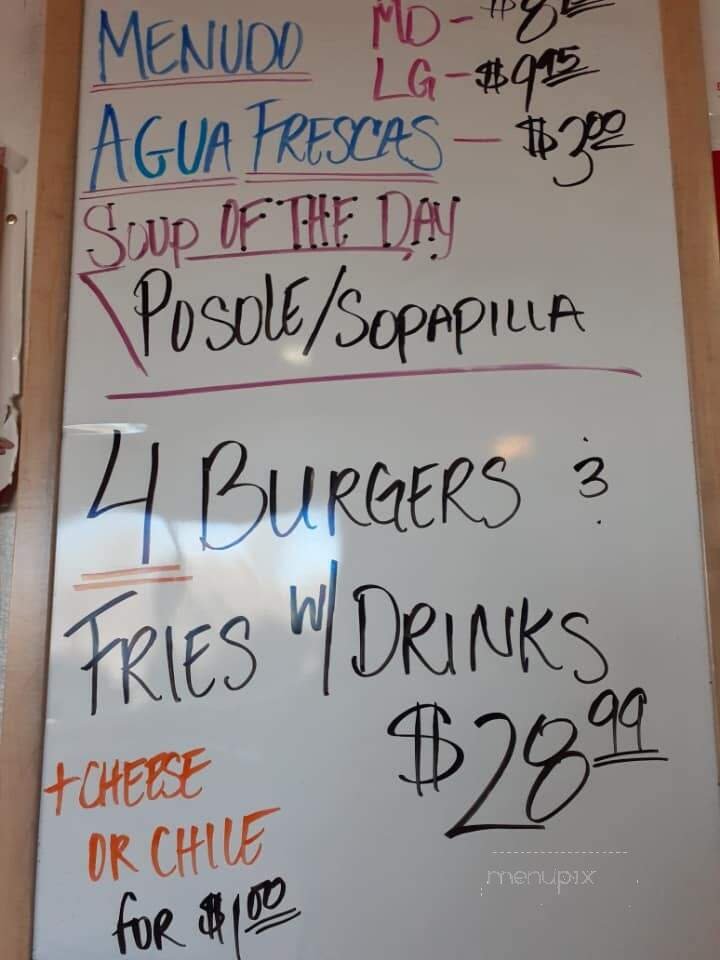 MENUDO MD-
LG-$9.95
AGUA FRESCAS — $3.00
SOUP OF THE DAY
POSOLE/SOPAPILLA
4 BURGERS &
FRIES W/DRINKS
$28.99
+CHEESE
OR CHILE
for $1.00
menupix